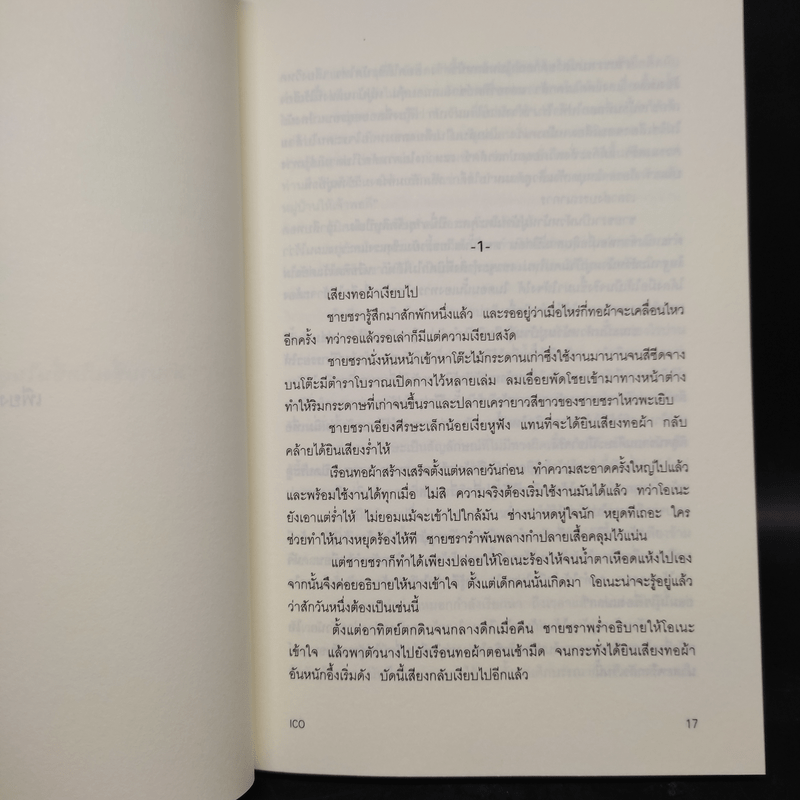 -1-
เสียงทอผ้าเงียบไป
ชายชรารู้สึกมาสักพักหนึ่งแล้ว และรออยู่ว่าเมื่อไหร่กี่ทอผ้าจะเคลื่อนไหว
อีกครั้ง ทว่ารอแล้วรอเล่าก็มีแต่ความเงียบสงัด
ชายชรานั่งหันหน้าเข้าหาโต๊ะไม้กระดานเก่าซึ่งใช้งานมานานจนสีซีดจาง
บนโต๊ะมีตำราโบราณเปิดกางไว้หลายเล่ม ลมเอื่อยพัดโชยเข้ามาทางหน้าต่าง
ทำให้ริมกระดาษที่เก่าจนขึ้นราและปลายเครายาวสีขาวของชายชราไหวพะเยิบ
ชายชราเอียงศีรษะเล็กน้อยเงี่ยหูฟัง แทนที่จะได้ยินเสียงทอผ้า กลับ
คล้ายได้ยินเสียงร่ำไห้
เรือนทอผ้าสร้างเสร็จตั้งแต่หลายวันก่อน ทำความสะอาดครั้งใหญ่ไปแล้ว
และพร้อมใช้งานได้ทุกเมื่อ ไม่สิ ความจริงต้องเริ่มใช้งานมันได้แล้ว ทว่าโอเนะ
ยังเอาแต่ร่ำไห้ ไม่ยอมแม้จะเข้าไปใกล้มัน ช่างน่าหดหู่ใจนัก หยุดทีเถอะ ใคร
ช่วยทำให้นางหยุดร้องไห้ที ชายชรารำพันพลางกำปลายเสื้อคลุมไว้แน่น
แต่ชายชราก็ทำได้เพียงปล่อยให้โอเนะร้องไห้จนน้ำตาเหือดแห้งไปเอง
จากนั้นจึงค่อยอธิบายให้นางเข้าใจ ตั้งแต่เด็กคนนั้นเกิดมา โอเนะน่าจะรู้อยู่แล้ว
ว่าสักวันหนึ่งต้องเป็นเช่นนี้
ตั้งแต่อาทิตย์ตกดินจนกลางดึกเมื่อคืน ชายชราพร่ำอธิบายให้โอเนะ
เข้าใจ แล้วพาตัวนางไปยังเรือนทอผ้าตอนเช้ามืด จนกระทั่งได้ยินเสียงทอผ้า
อันหนักอึ้งเริ่มดัง บัดนี้เสียงกลับเงียบไปอีกแล้ว
ICO
17